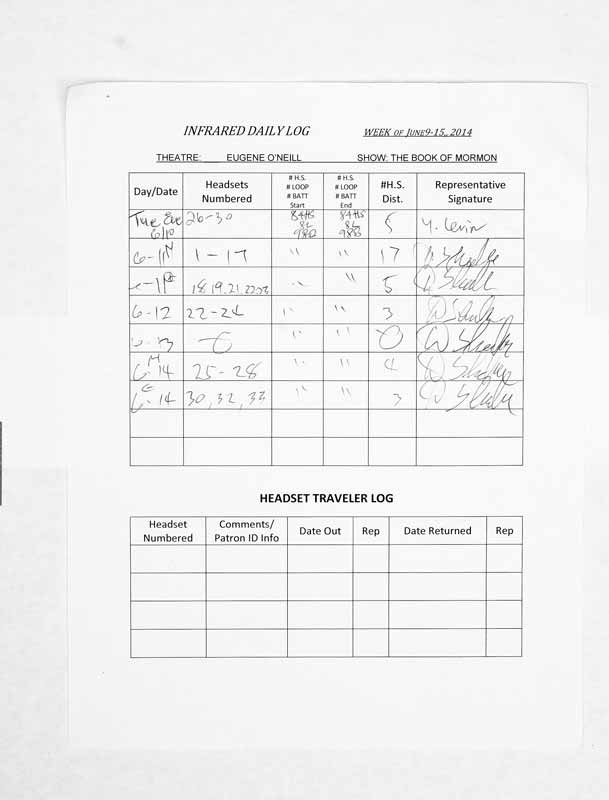 INFRARED DAILY LOG WEEK OF JUNE9-15, 2014
THEATRE: ___ EUGENE O'NEILL SHOW: THE BOOK OF MORMON
Day/Date Headsets Numbered # H.S. # LOOP # BATT Start # H.S. # LOOP # BATT End #H.S. Dist. Representative Signature
Tue Eve 6/10 26-30 84HS 8L 5 Y. Levin
6-11 1-17 " " 17
18,19,21, " " 5
6-12 22-24 " " 3
" "
6-14 M 25-28 " " 4
6-14 E 30, 32, 33 " " 3
HEADSET TRAVELER LOG
Headset Numbered Comments/ Patron ID Info Date Out Rep Date Returned Rep